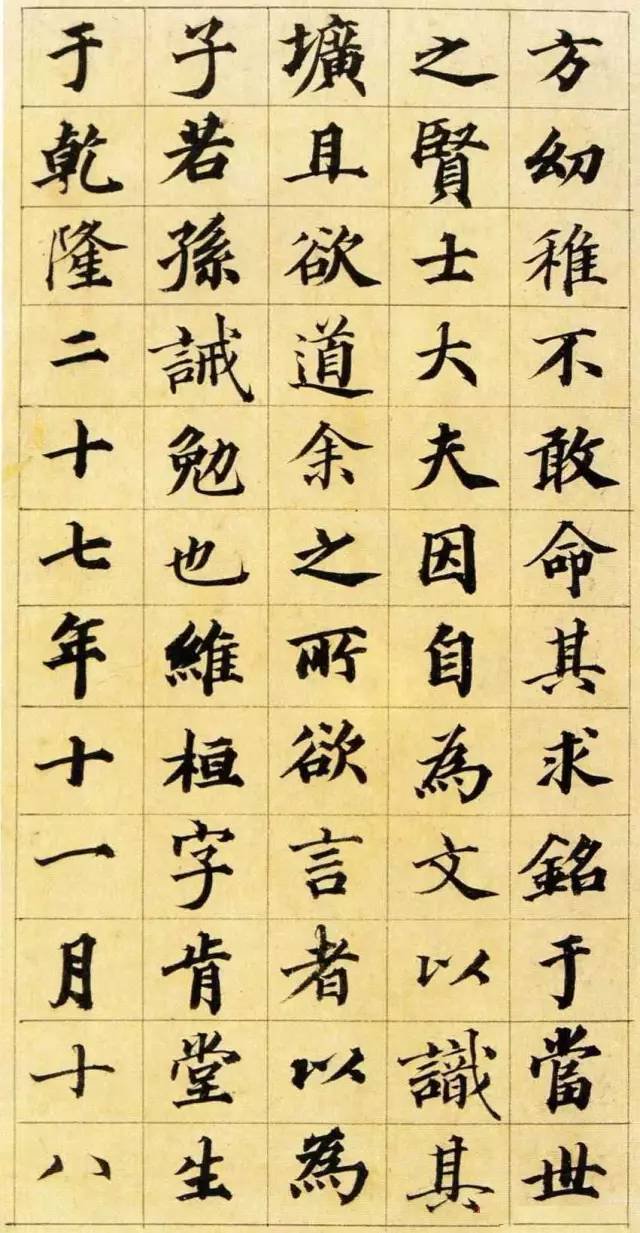 方幼稚不敢命其求銘于當世
之賢士大夫因自為文以識其
壙且欲道余之所欲言者以為
子若孫誡勉也維桓字肯堂生
于乾隆二十七年十一月十八